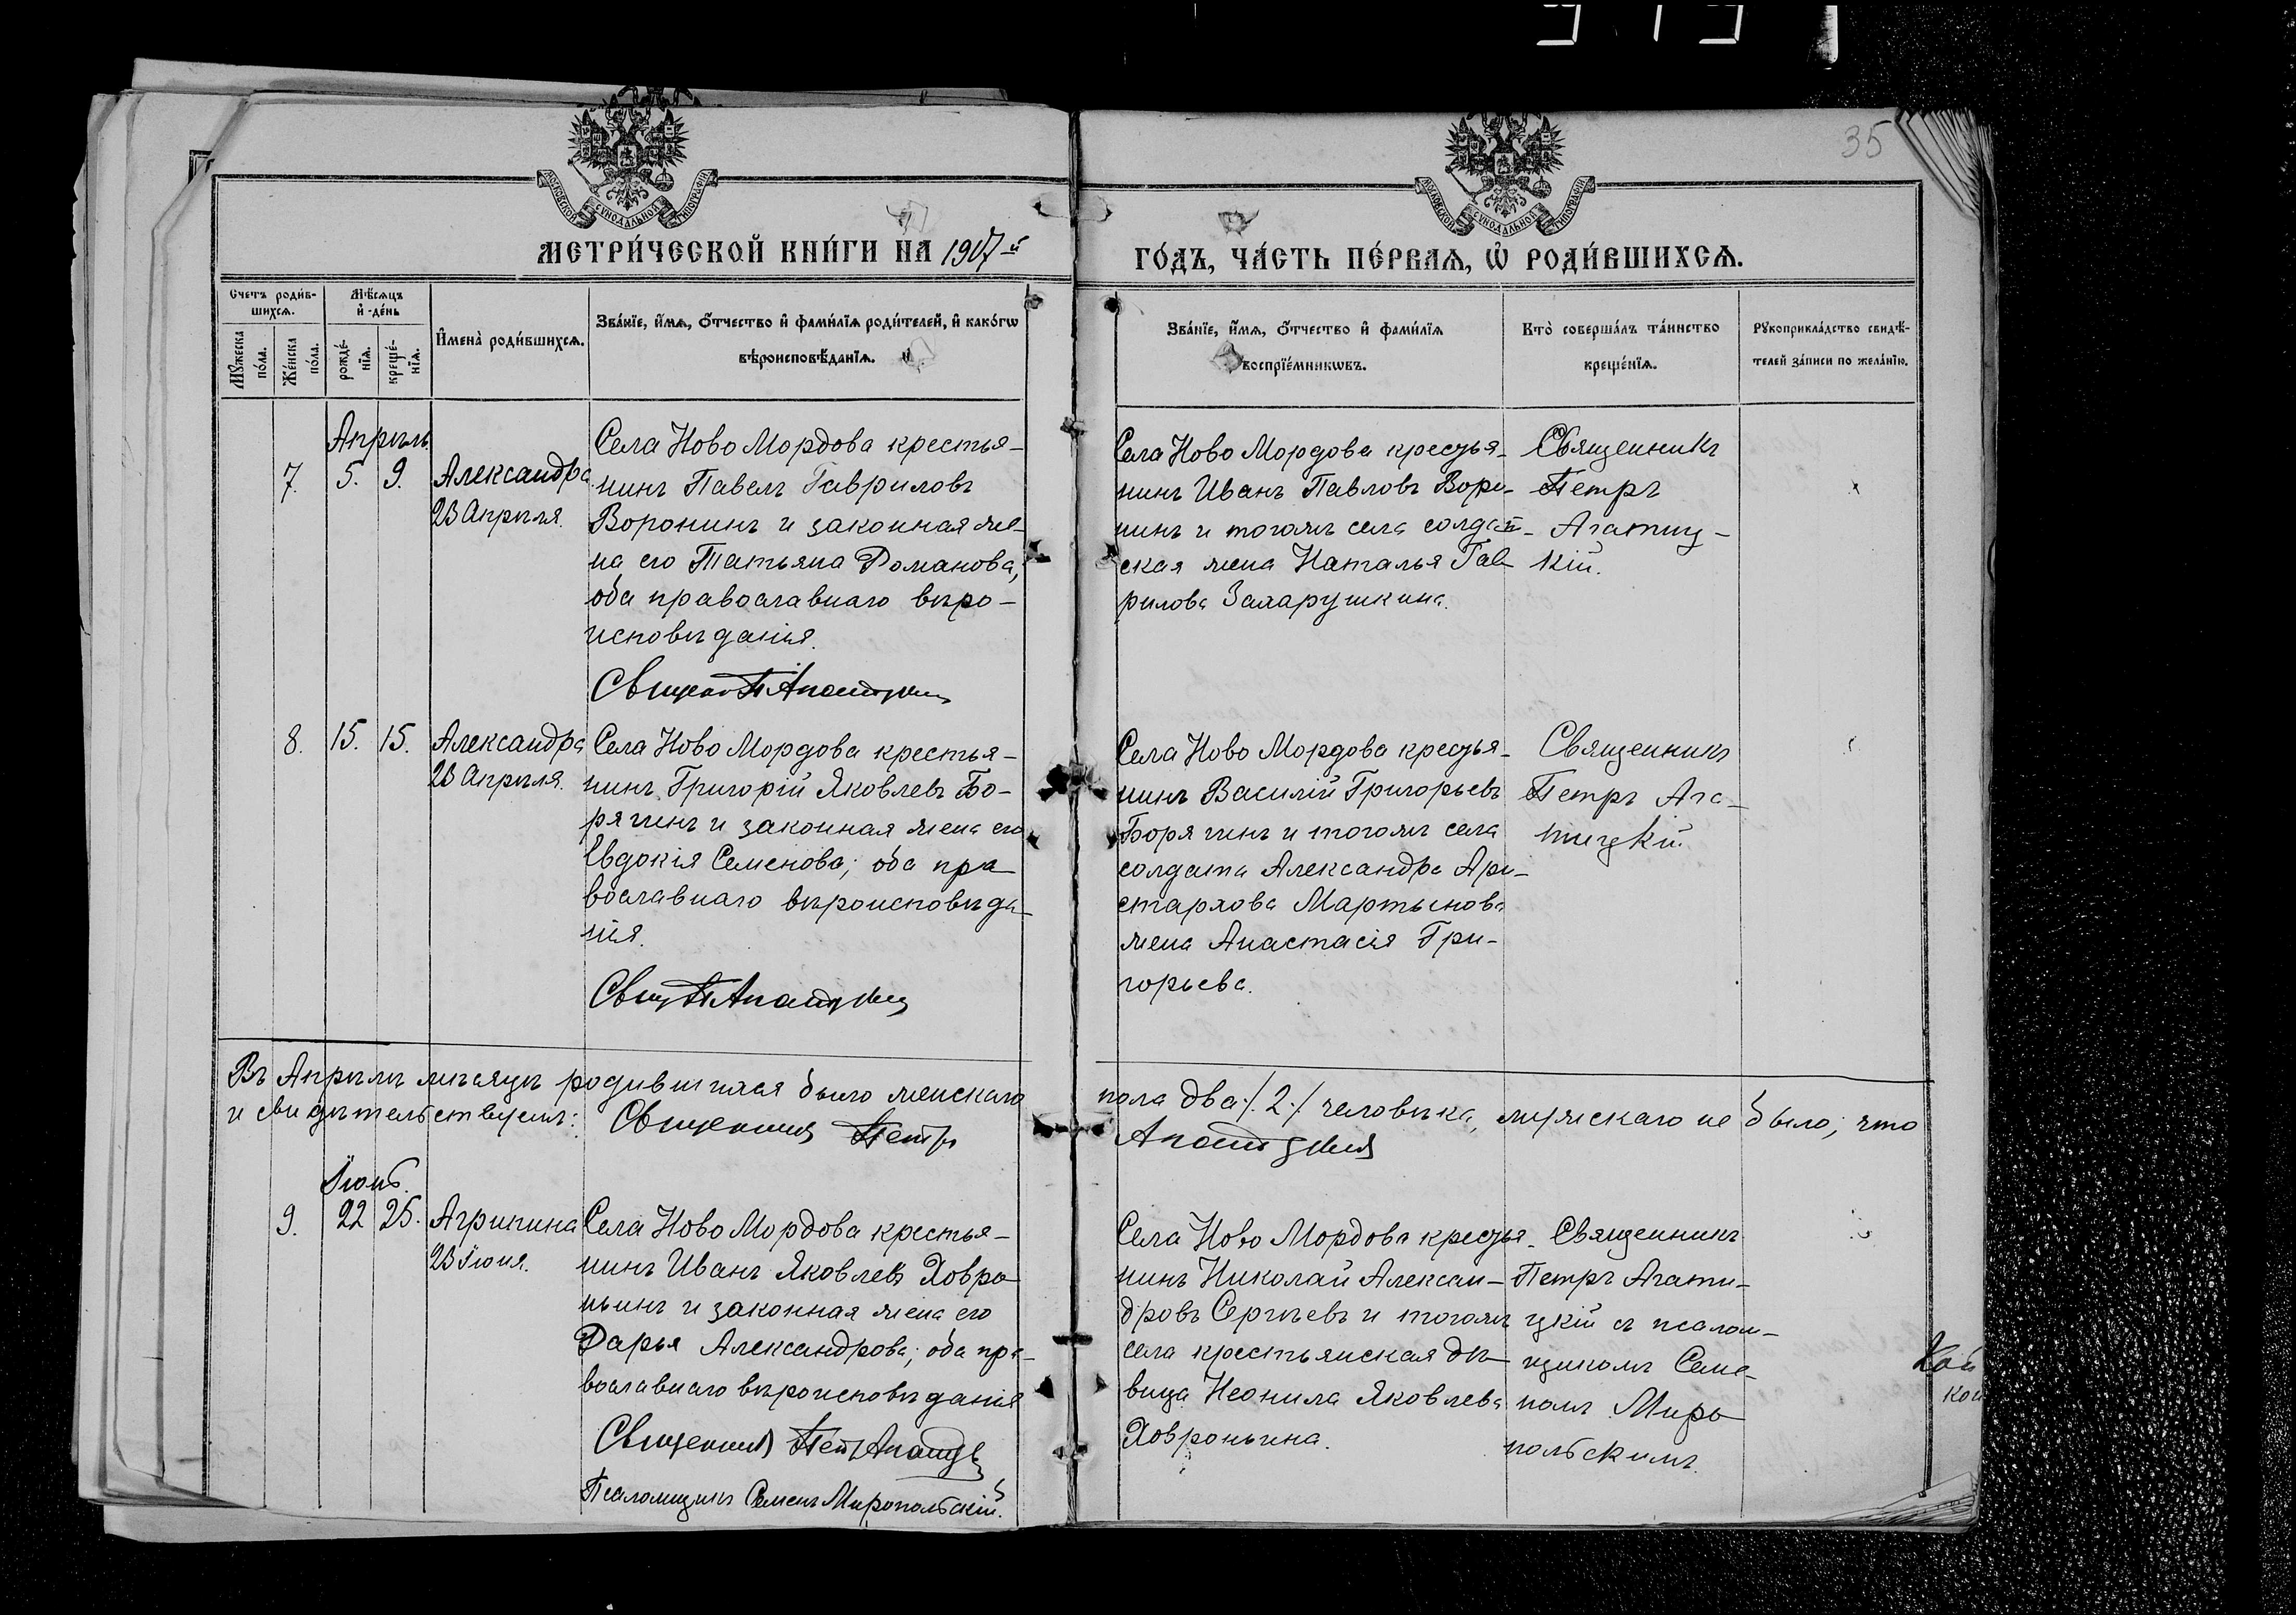 35
МОСКОВСКОЙ СѴНОДАЛЬНОЙ ТИПОГРАФІИ
МОСКОВСКОЙ СѴНОДАЛЬНОЙ ТИПОГРАФІИ
МЕТРИ́ЧЕСКОЙ КНИ́ГИ НА 1907-й
ГО́ДЪ, ЧА́СТЬ ПЕ́РВАѦ, Ѽ РОДИ́ВШИХСѦ.
Счетъ роди́в-
шихсѧ.
Мѣ́сѧцъ
и҆ де́нь
Мꙋжеска
по́ла.
Же́нска
по́ла.
рожде́-
нїѧ.
креще́-
нїѧ.
И҆мена̀ роди́вшихсѧ.
Зва́нїе, и҆́мѧ, ѻ҆́тчество и҆ фами́лїѧ роди́телей, и҆ како́гѡ
вѣроисповѣ́данїѧ.
Зва́нїе, и҆́мѧ, ѻ҆́тчество и҆ фами́лїѧ
воспрїе́мникѡвъ.
Кто̀ соверша́лъ та́инство
креще́нїѧ.
Рꙋкоприкла́дство свидѣ́-
телей за́писи по жела́нїю.
Апрѣль
7. 5. 9. Александра
23 Апрѣля.
Села Ново Мордова крестья-
нинъ Павелъ Гавриловъ
Воронинъ и законная же-
на его Татьяна Романова;
оба православнаго вѣро-
исповѣданія.
Села Ново Мордова крестья-
нинъ Иванъ Павловъ Воро-
нинъ и тогожъ села солдат-
ская жена Наталья Гав-
рилова Захарушкина.
Священникъ
Петръ
Агатиц-
кій.
8. 15. 15. Александра
23 Апрѣля.
Села Ново Мордова крестья-
нинъ Григорій Яковлевъ Бо-
рягинъ и законная жена его
Евдокія Семенова; оба пра-
вославнаго вѣроисповѣда-
нія.
Села Ново Мордова крестья-
нинъ Василій Григорьевъ
Борягинъ и тогожъ села
солдата Александра Ари-
стархова Мартынова
жена Анастасія Гри-
горьева.
Священникъ
Петръ Ага-
тицкій.
Въ Апрѣлѣ мѣсяцѣ родившихся было женскаго пола два /.2./ человѣка, мужскаго не было; что
и свидѣтельствуемъ: Священникъ Петръ
Іюнь.
9. 22 25. Агрипина
23 Іюня.
Села Ново Мордова крестья-
нинъ Иванъ Яковлевъ Ховро-
ньинъ и законная жена его
Дарья Александрова; оба пра-
вославнаго вѣроисповѣданія
Священникъ
Псаломщикъ Семенъ Миропольскій.
Села Ново Мордова крестья-
нинъ Николай Алексан-
дровъ Сергѣевъ и тогожъ
села крестьянская дѣ-
вица Неонила Яковлева
Ховроньина.
Священникъ
Петръ Агати-
цкій съ псалом-
щикомъ Семе-
номъ Миро-
польскимъ.